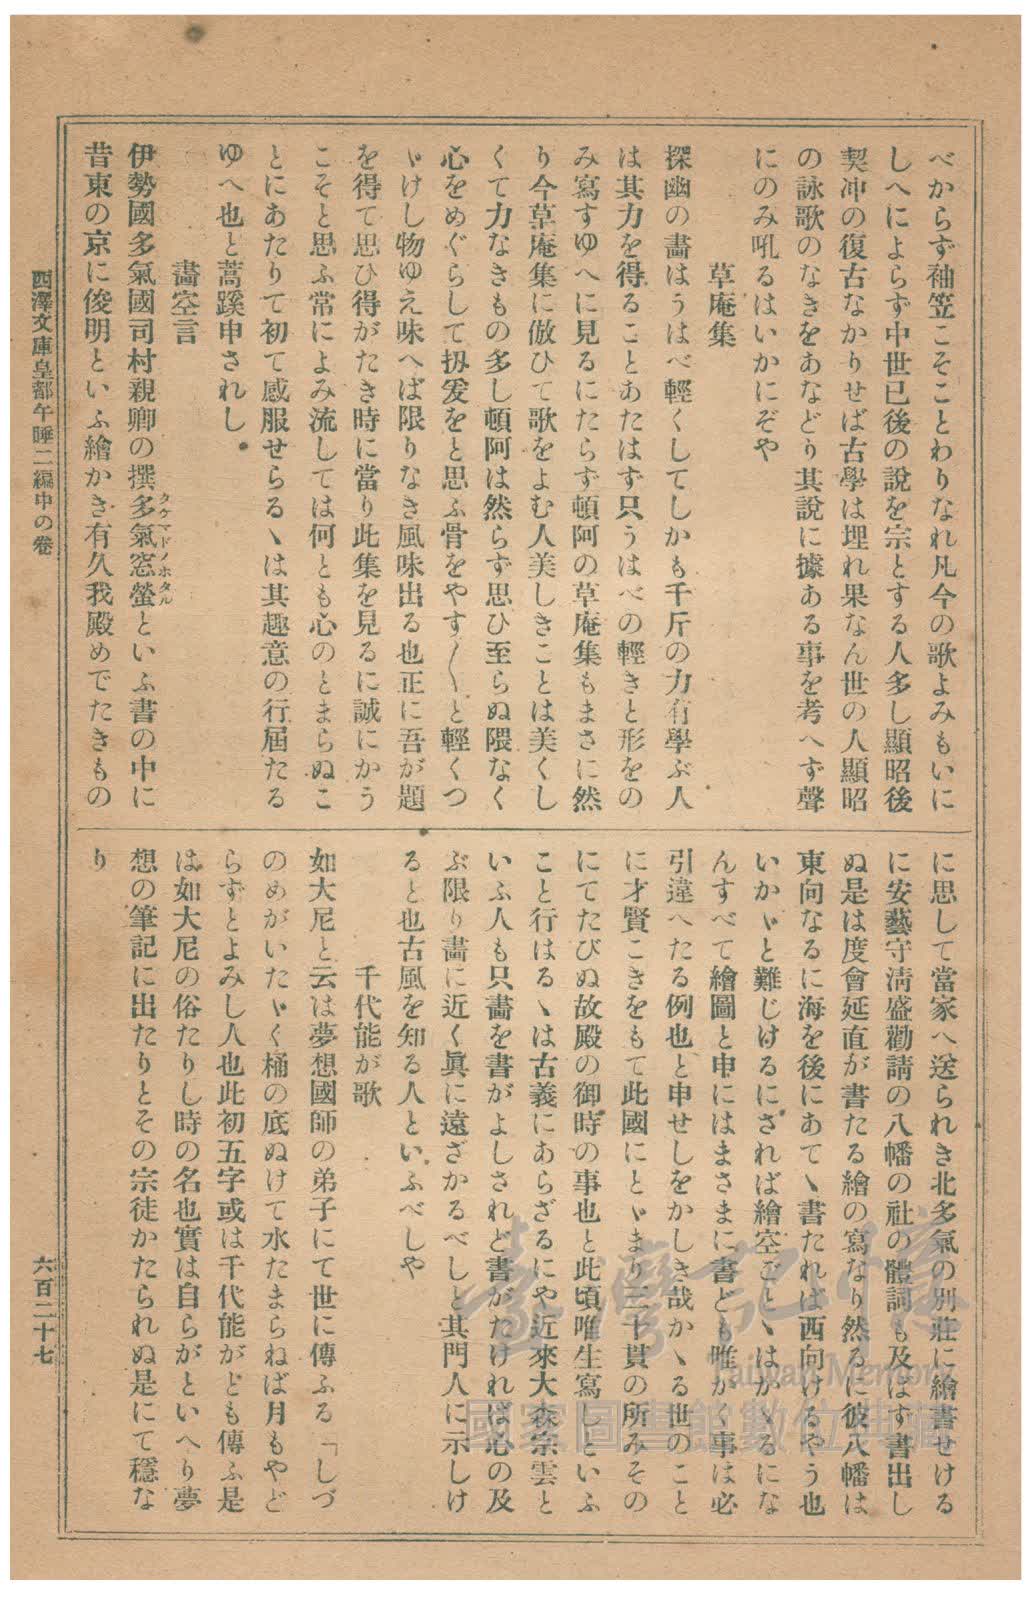 べからず袖笠こそことわりなれ凡今の歌よみもいに
しへによらず中世已後の說を宗とする人多し顯昭後
契冲の復古なかりせば古學は埋れ果なん世の人顯昭
の詠歌のなきをあなどり其說に據ある事を考へず聲
にのみ吼るはいかにぞや
草庵集
探幽の畵はうはべ輕くしてしかも千斤の力有學ぶ人
は其力を得ることあたはず只うはべの輕きと形をの
み寫すゆへに見るにたらず頓阿の草庵集もまさに然
り今草庵集に倣ひて歌をよむ人美しきことは美くし
くて力なきもの多し頓阿は然らず思ひ至らぬ隈なく
心をめぐらして扨爰をと思ふ骨をやす〳〵と輕くつ
ゞけし物ゆえ味へば限りなき風味出る也正に吾が題
を得て思ひ得がたき時に當り此集を見るに誠にかう
こそと思ふ常によみ流しては何とも心のとまらぬこ
とにあたりて初て感服せらるゝは其趣意の行屆たる
ゆへ也と蒿蹊申されし。
畵空言
伊勢國多氣國司村親卿の撰多氣窓螢といふ書の中に
タケマドノホタル
昔東の京に俊明といふ繪かき有久我殿めでたきもの
に思して當家へ送られき北多氣の別莊に繪書せける
に安藝守淸盛勸請の八幡の社の體詞も及ばず書出し
ぬ是は度會延直が書たる繪の寫なり然るに彼八幡は
東向なるに海を後にあてゝ書たれば西向けるやう也
いかゞと難じけるにされば繪空ごとゝはかゝるにな
んすべて繪圖と申にはまさまに書ども唯かく事は必
引違へたる例也と申せしをかしき哉かゝる世のこと
に才賢こきをもて此國にとゞまり三十貫の所みその
にてたびぬ故殿の御時の事也と此頃唯生寫しといふ
こと行はるゝは古義にあらざるにや近來大森宗雲と
いふ人も只畵を書がよしされど書がたければ心の及
ぶ限り畵に近く眞に遠ざかるべしと其門人に示しけ
ると也古風を知る人といふべしや
千代能が歌
如大尼と云は夢想國師の弟子にて世に傳ふる「しづ
のめがいたゞく桶の底ぬけて水たまらねば月もやど
らずとよみし人也此初五字或は千代能がとも傳ふ是
は如大尼の俗たりし時の名也實は自らがといへり夢
想の筆記に出たりとその宗徒かたられぬ是にて穩な
り
西澤文庫皇都午睡二編中の卷
六百二十七
臺灣記憶
Taiwan Memory
國家圖書館數位典藏